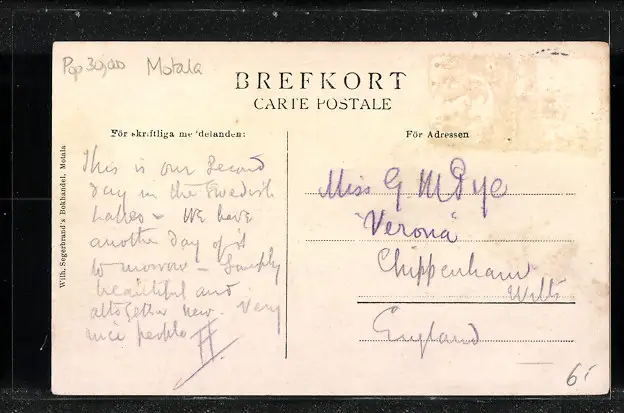 Pop 30,000 Motala
BREFKORT
CARTE POSTALE
För skriftliga meddelanden:
För Adressen
Wilh. Segerbrand's Bokhandel, Motala
This is our second
day in the Swedish
lakes - We have
another day of it
to morrow - Simply
beautiful and
altogether new. Very
nice people
Miss G M Pye
"Verona"
Chippenham
Wilts
England
6/-